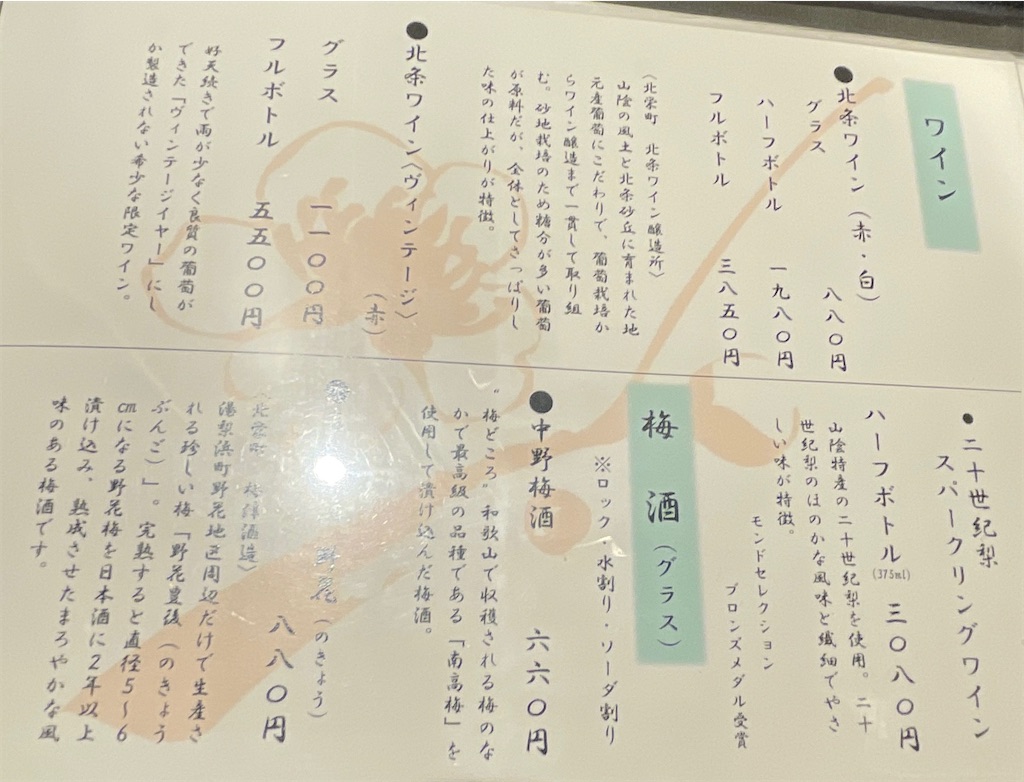 ワイン
●北条ワイン（赤・白）
グラス　八八〇円
ハーフボトル　一九八〇円
フルボトル　三八五〇円
〈北栄町　北条ワイン醸造所〉
山陰の風土と北条砂丘に育まれた地
元産葡萄にこだわりで、葡萄栽培か
らワイン醸造まで一貫して取り組
む。砂地栽培のため糖分が多い葡萄
が原料だが、全体としてさっぱりし
た味の仕上がりが特徴。
●北条ワイン〈ヴィンテージ〉
（赤）
グラス　一一〇〇円
フルボトル　五五〇〇円
好天続きで雨が少なく良質の葡萄が
できた「ヴィンテージイヤー」にし
か製造されない希少な限定ワイン。
●二十世紀梨
スパークリングワイン
ハーフボトル(375ml)　三〇八〇円
山陰特産の二十世紀梨を使用。二十
世紀梨のほのかな風味と繊細でやさ
しい味が特徴。
モンドセレクション
ブロンズメダル受賞
梅酒（グラス）
※ロック・水割り・ソーダ割り
●中野梅酒　六六〇円
〝梅どころ〟和歌山で収穫される梅のな
かで最高級の品種である「南高梅」を
使用して漬け込んだ梅酒。
野花（のきょう）
八八〇円
北栄町　酒造〉
湯梨浜町野花地区周辺だけで生産さ
れる珍しい梅「野花豊後（のきょう
ぶんご）」。完熟すると直径5〜6
cmになる野花梅を日本酒に2年以上
漬け込み、熟成させたまろやかな風
味のある梅酒です。